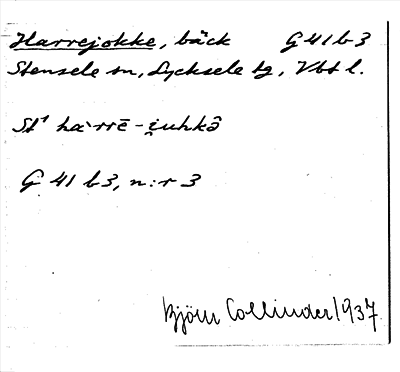 Harrejokke, bäck G 41 b 3
Stensele sn, Lycksele tg, Vbt l.
St¹ ha`rrē-i̯uhkɔ̄
G 41 b 3, n:r 3
Björn Collinder 1937